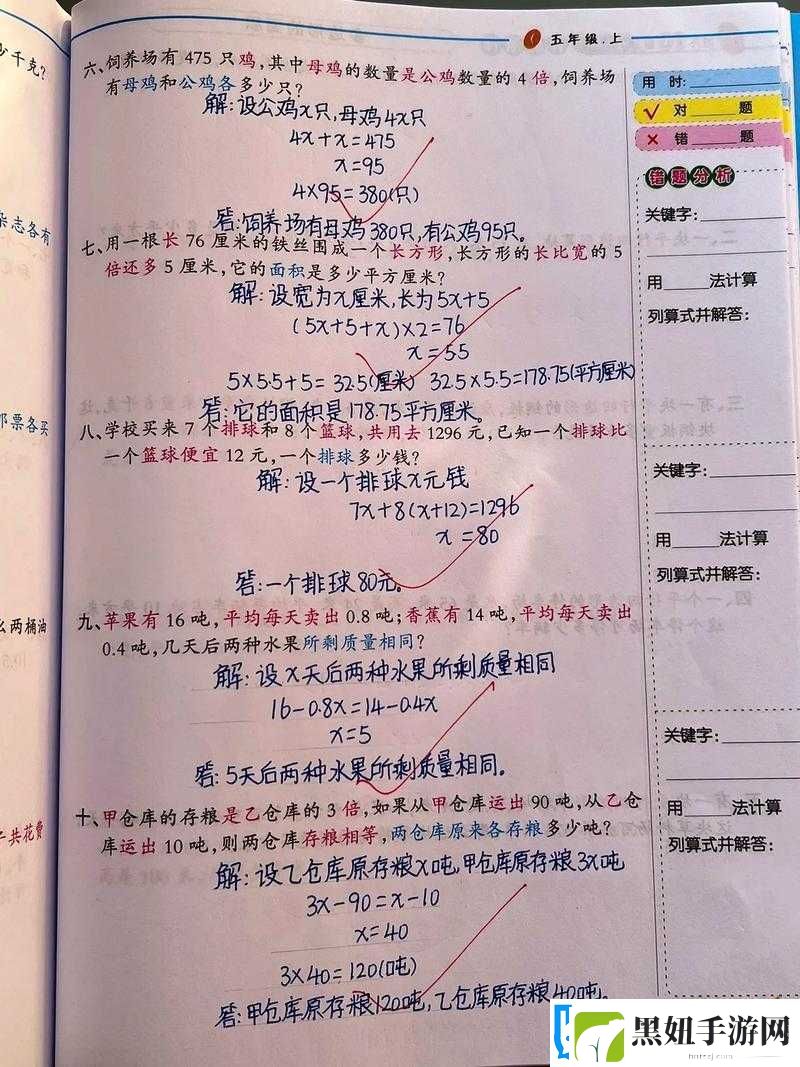 五年级.上
少千克?
六、饲养场有 475 只鸡,其中母鸡的数量是公鸡数量的 4 倍,饲养场
有母鸡和公鸡各多少只?
解:设公鸡x只,母鸡4x只
4x+x=475
x=95
4×95=380(只)
答:饲养场有母鸡380只,有公鸡95只。
杂志各有
七、用一根长 76 厘米的铁丝围成一个长方形,长方形的长比宽的 5
倍还多 5 厘米,它的面积是多少平方厘米?
解:设宽为x厘米,长为5x+5
(5x+5+x)×2=76
x=5.5
5×5.5+5=32.5(厘米) 32.5×5.5=178.75(平方厘米)
答:它的面积是178.75平方厘米。
邮票各买
八、学校买来 7 个排球和 8 个篮球,共用去 1296 元,已知一个排球比
一个篮球便宜 12 元,一个排球多少钱?
解:设一个排球x元钱
7x+8(x+12)=1296
x=80
答:一个排球80元。
九、苹果有 16 吨,平均每天卖出 0.8 吨;香蕉有 14 吨,平均每天卖出
0.4 吨,几天后两种水果所剩质量相同?
么两桶油
解:设x天后两种水果所剩质量相同
16-0.8x=14-0.4x
x=5
答:5天后两种水果所剩质量相同。
十、甲仓库的存粮是乙仓库的 3 倍,如果从甲仓库运出 90 吨,从乙仓
库运出 10 吨,则两仓库存粮相等,两仓库原来各存粮多少吨?
共花费
解:设乙仓库原存粮x吨,甲仓库原存粮3x吨
3x-90=x-10
x=40
3×40=120(吨)
答:甲仓库原存粮120吨,乙仓库原存粮40吨。
用 时:
✓ 对 题
× 错 题
错题分析
关键字:
用 法计算
列算式并解答:
关键字:
用 法计算
列算式并解答:
关键字:
用 法计算
列算式并解答:
黑妞手游网